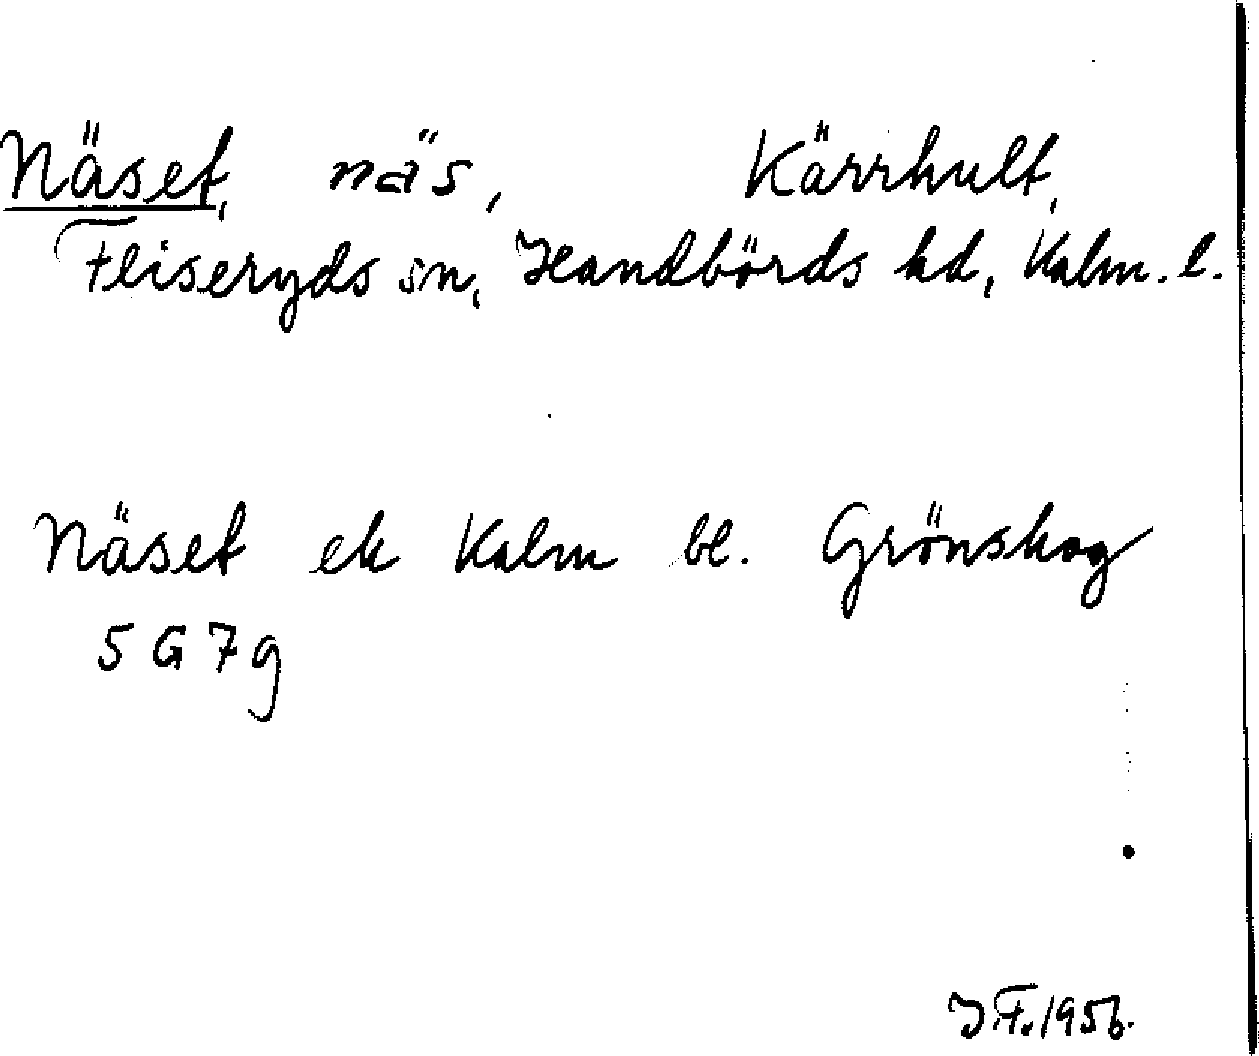 Näset, näs, Kärrhult,
Fliseryds sn, Handbörds hd, Kalm. l.
Näset ek Kalm bl. Grönskog
5 G 7 g
J F. 1956.